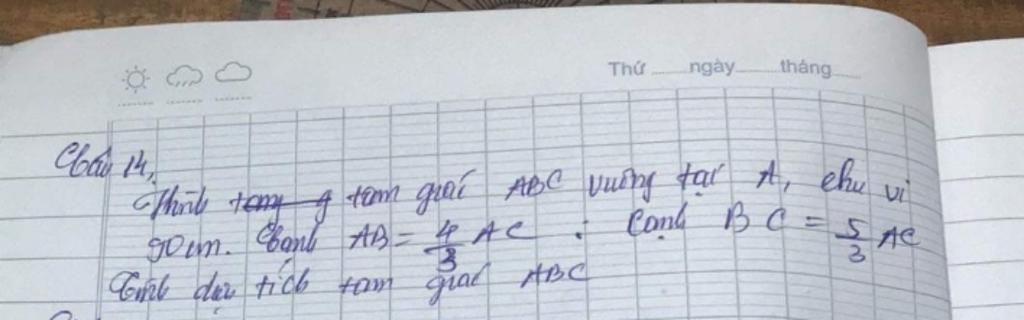 Thứ ngày tháng
Câu 14,
Hình tam giác ABC vuông tại A, chu vi
90cm. Cạnh AB = 4/3 AC ; Cạnh BC = 5/3 AC
Tính diện tích tam giác ABC